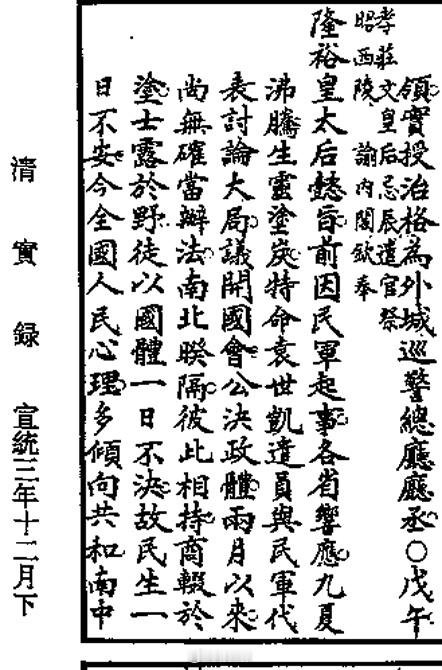 領實授治格為外城巡警總廳廳丞○戊午
孝莊文皇后忌辰遣官祭
昭西陵 諭內閣欽奉
隆裕皇太后懿旨前因民軍起事各省響應九夏
沸騰生靈塗炭特命袁世凱遣員與民軍代
表討論大局議開國會公決政體兩月以來
尚無確當辦法南北暌隔彼此相持商輟於
塗士露於野徒以國體一日不決故民生一
日不安今全國人民心理多傾向共和南中
清實録 宣統三年十二月下